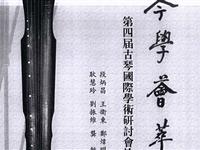 琴學薈萃
第四屆古琴國際學術研討會
段炳昌 王衛東 鄭煒明
耿慧玲 劉振維 龔